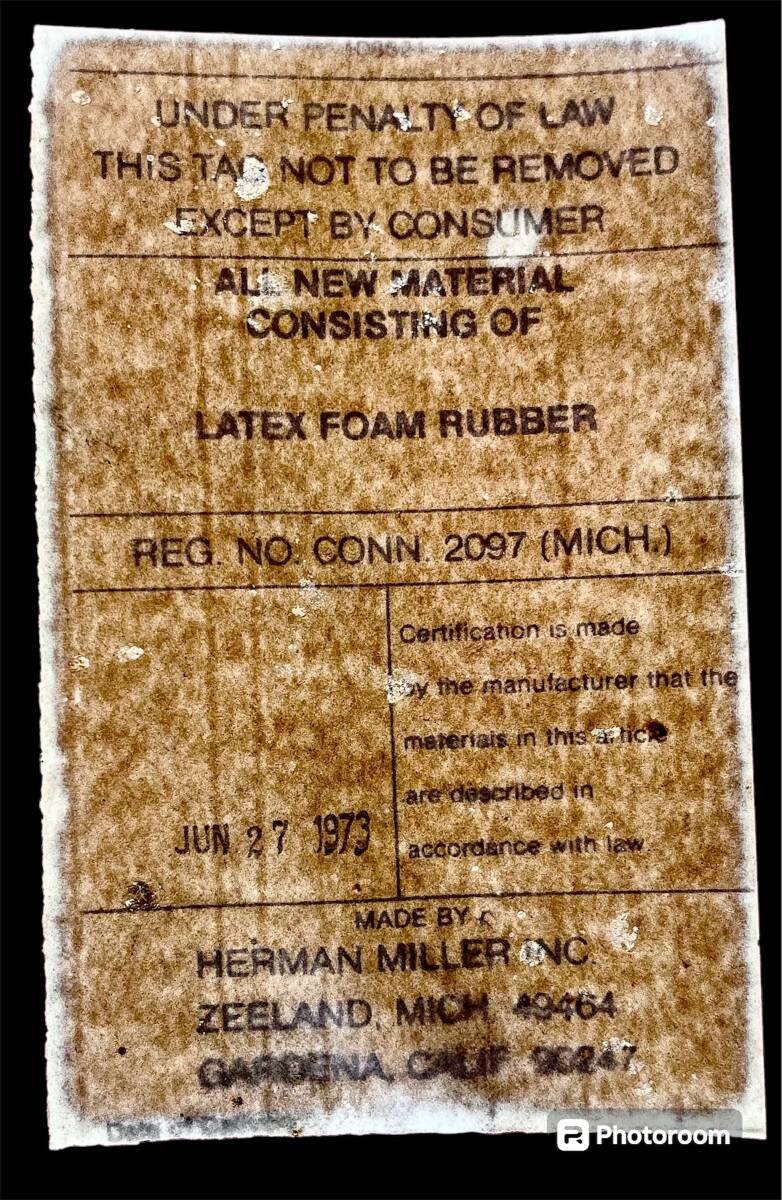 UNDER PENALTY OF LAW
THIS TAG NOT TO BE REMOVED
EXCEPT BY CONSUMER
ALL NEW MATERIAL
CONSISTING OF
LATEX FOAM RUBBER
REG. NO. CONN. 2097 (MICH.)
Certification is made
by the manufacturer that the
materials in this article
are described in
accordance with law.
JUN 27 1973
MADE BY
HERMAN MILLER INC.
ZEELAND, MICH. 49464
GARDENA, CALIF 90247
Photoroom